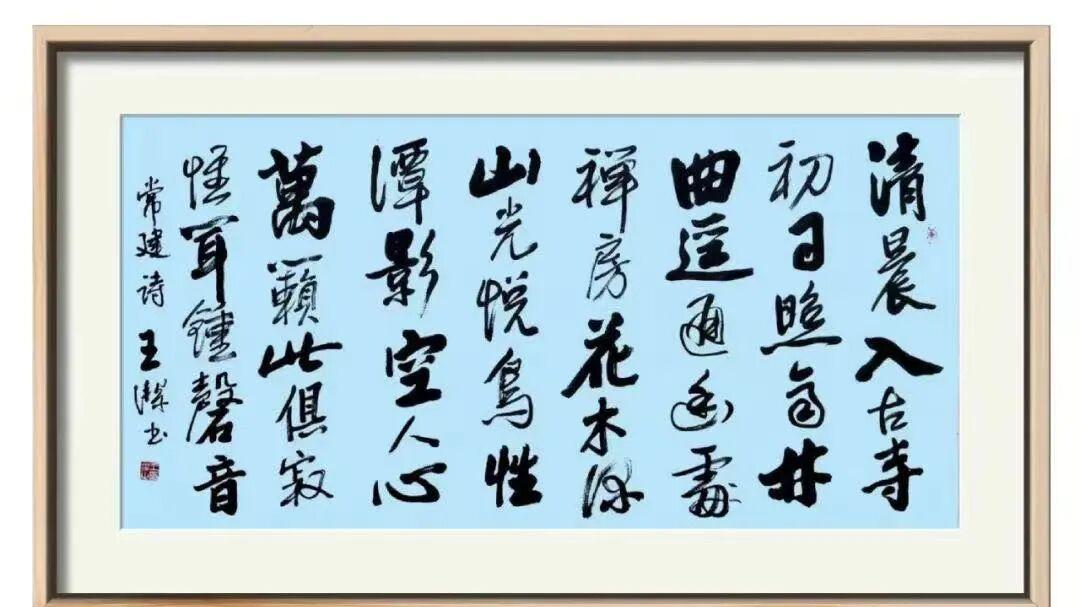 清晨入古寺
初日照高林
曲逕通幽處
禪房花木深
山光悅鳥性
潭影空人心
萬籟此俱寂
惟聞鍾磬音
常建诗 王潔书